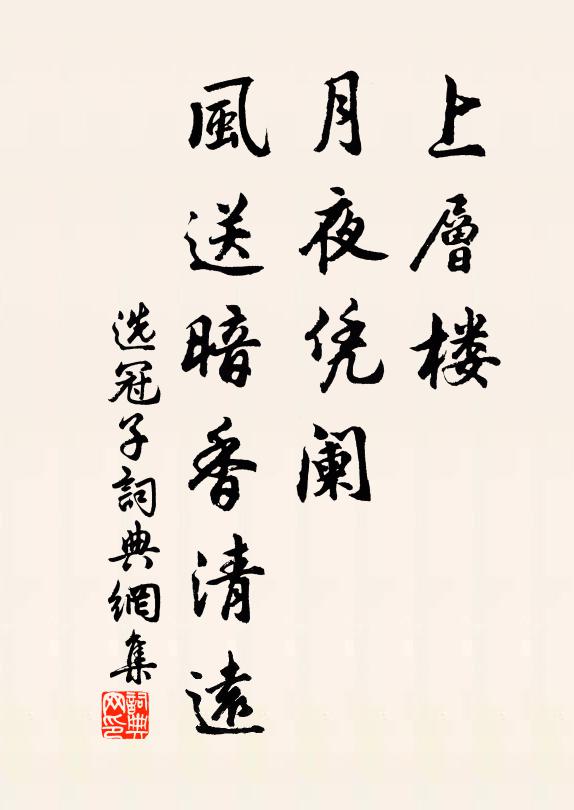 上層楼
月夜凭阑
風送暗香清遠
选冠子詞典網集
詞典网印